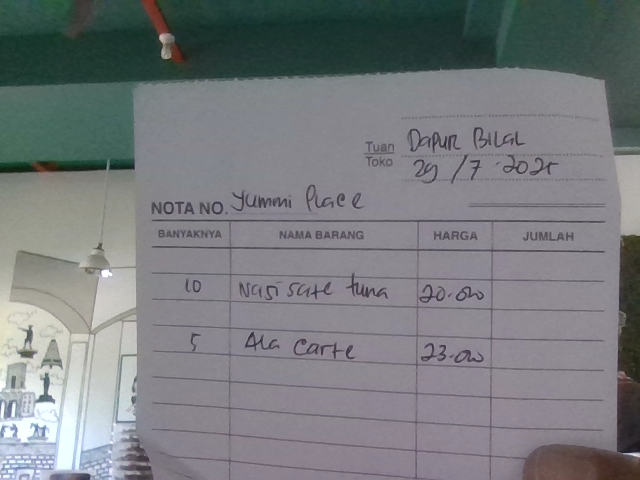 Tuan Dapur Bilal
Toko 29/7.2025
NOTA NO. Yummi Place
BANYAKNYA NAMA BARANG HARGA JUMLAH
10 Nasi sate tuna 20.000
5 Ala carte 23.000